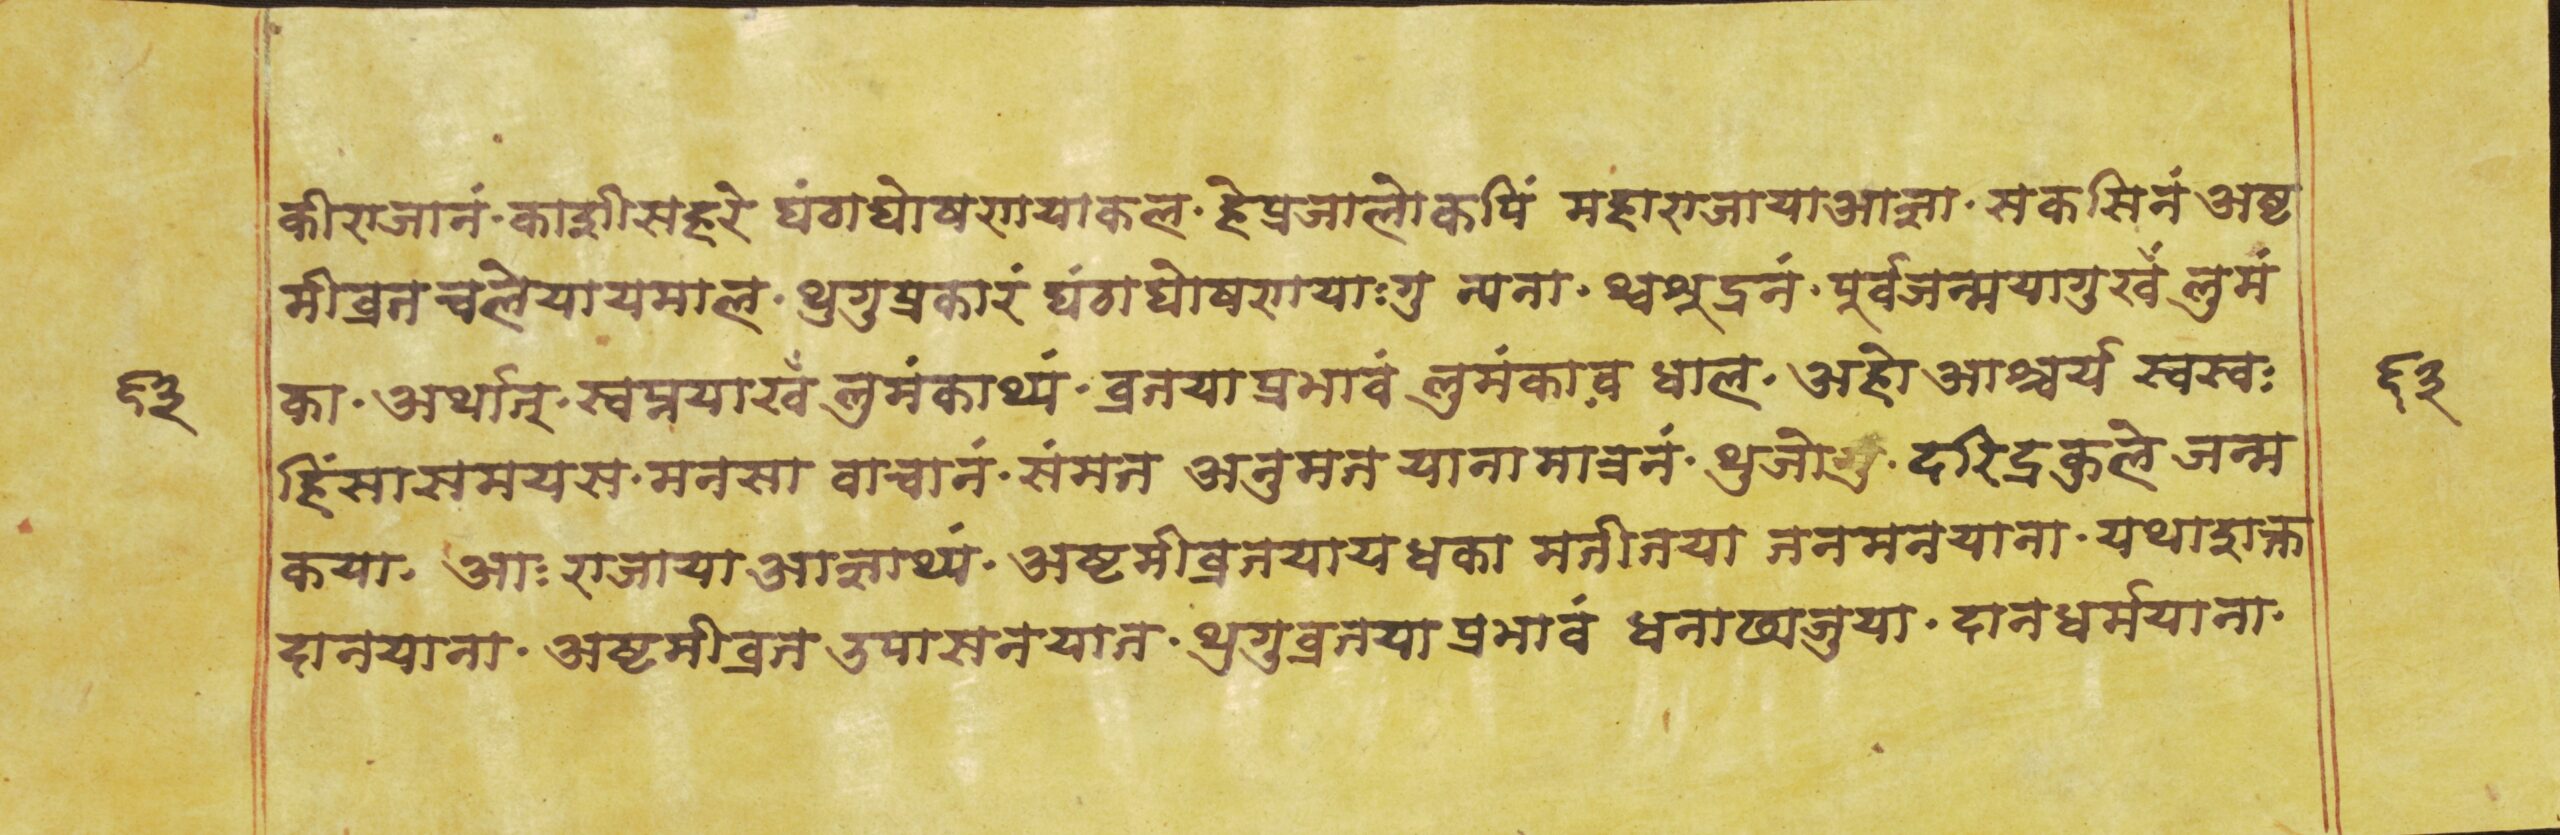 की राजानं · काशी सहरे घंठा घोषरणयाकल · हे प्रजालोकपिं महाराजाया आज्ञा · सकसिनं अष्ट
मीव्रत चलेयायमाल · थुगु प्रकारं घंठा घोषरणयाःगु न्यना · थ्व शूद्रनं · पूर्वजन्मयागु खँ लुमं
६३ का · अर्थात् · स्वप्नया खँ लुमंकाथ्यं · व्रतया प्रभावं लुमंकाव धाल · अहो आश्चर्य स्वस्वः ६३
हिंसा समयस · मनसा वाचानं · संमत अनुमत याना मात्रनं · थुजोगु · दरिद्रकुले जन्म
कया · आः राजाया आज्ञाथ्यं · अष्टमीव्रतयाय धका मतीतया तनमनयाना · यथाशक्त
दानयाना · अष्टमीव्रत उपासनयात · थुगु व्रतया प्रभावं धनाढ्यजुया · दानधर्मयाना ·